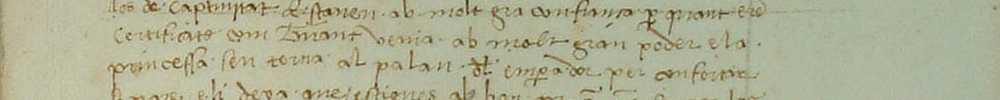 los de captiuitat e stauen ab molt gra confiança per quant ere
certificats com Tirant venia ab molt gran poder e la
princessa sen torna al palau del emperador per confortar
lo pare e li deya que estigues ab bon